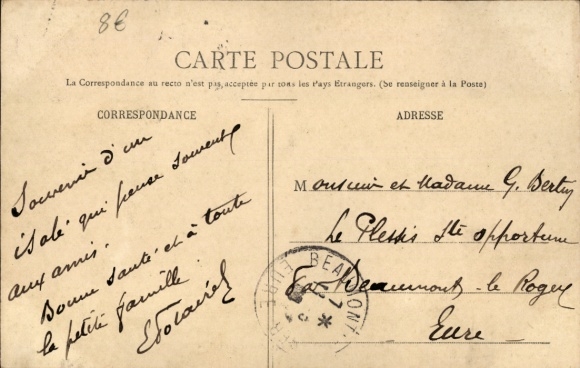 8€
CARTE POSTALE
La Correspondance au recto n'est pas acceptée par tous les Pays Étrangers. (Se renseigner à la Poste)
CORRESPONDANCE
Souvenir d'un
isolé qui pense souvent
aux amis.
Bonne santé et à toute
la petite famille.
ADRESSE
Monsieur et Madame G.
Le Plessis Ste Opportune
Par Beaumont-le Roger
Eure -
BEAUMONT
EURE